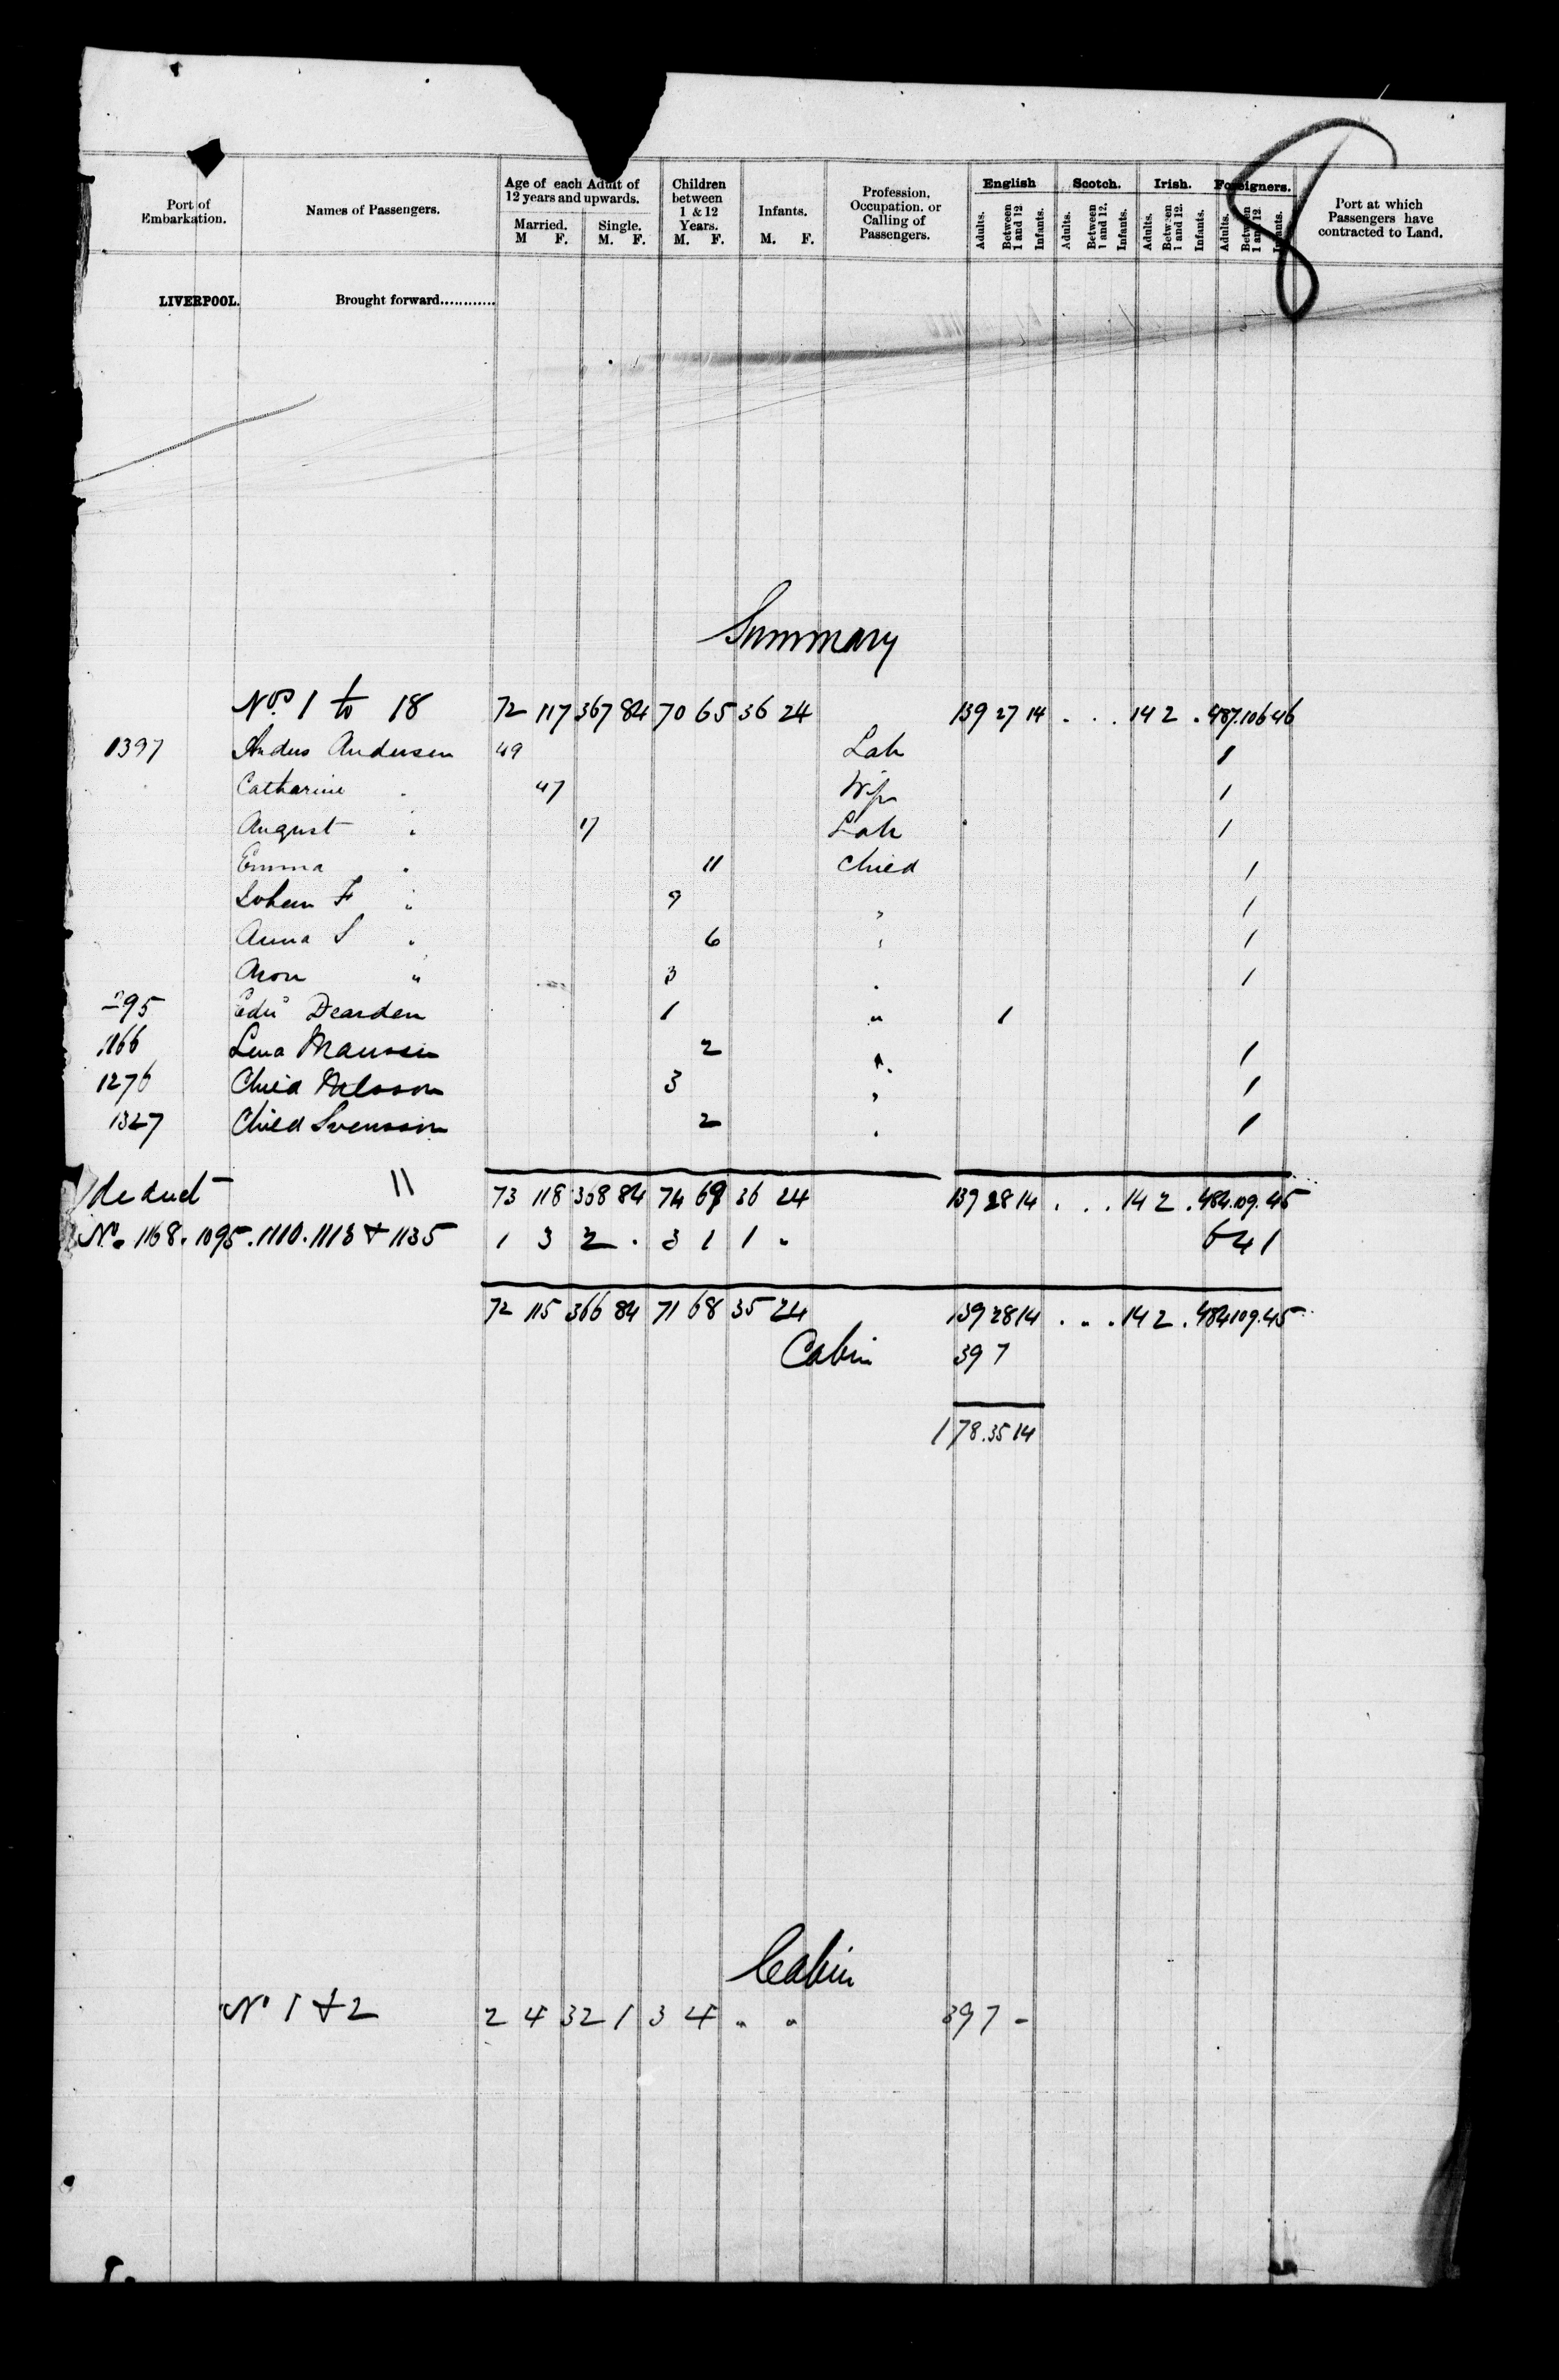 8
Port of Embarkation. Names of Passengers. Age of each Adult of 12 years and upwards. Married. M F. Single. M. F. Children between 1 & 12 Years. M. F. Infants. M. F. Profession, Occupation, or Calling of Passengers. English Adults. Between 1 and 12 Infants. Scotch. Adults. Between 1 and 12. Infants. Irish. Adults. Between 1 and 12. Infants. Foreigners. Adults. Between 1 and 12 Infants. Port at which Passengers have contracted to Land.
LIVERPOOL. Brought forward............
Summary
Nos. 1 to 18 72 117 367 84 70 65 36 24 139 27 14 . . . 14 2 . 487. 106 46
1397 Andus Andersen 49 Lab 1
Catharine " 47 Wife 1
August " 17 Lab 1
Emma " 11 Child 1
Johan F " 9 " 1
Anna S " 6 " 1
Aron " 3 " 1
295 Edwd Dearden 1 " 1
1166 Lena 2 " 1
1276 Child Nilsson 3 " 1
1327 Child Svensson 2 " 1
deduct 11 73 118 368 84 74 69 36 24 139 28 14 . . . 14 2 . 484. 109. 45
No. 1168. 1095. 1110. 1113 & 1135 1 3 2 . 3 1 1 . 6 4 1
72 115 366 84 71 68 35 24 139 28 14 . . . 14 2 . 484 109. 45
Cabin 39 7
178. 35 14
Cabin
No 1 & 2 2 4 32 1 3 4 " " 39 7 -